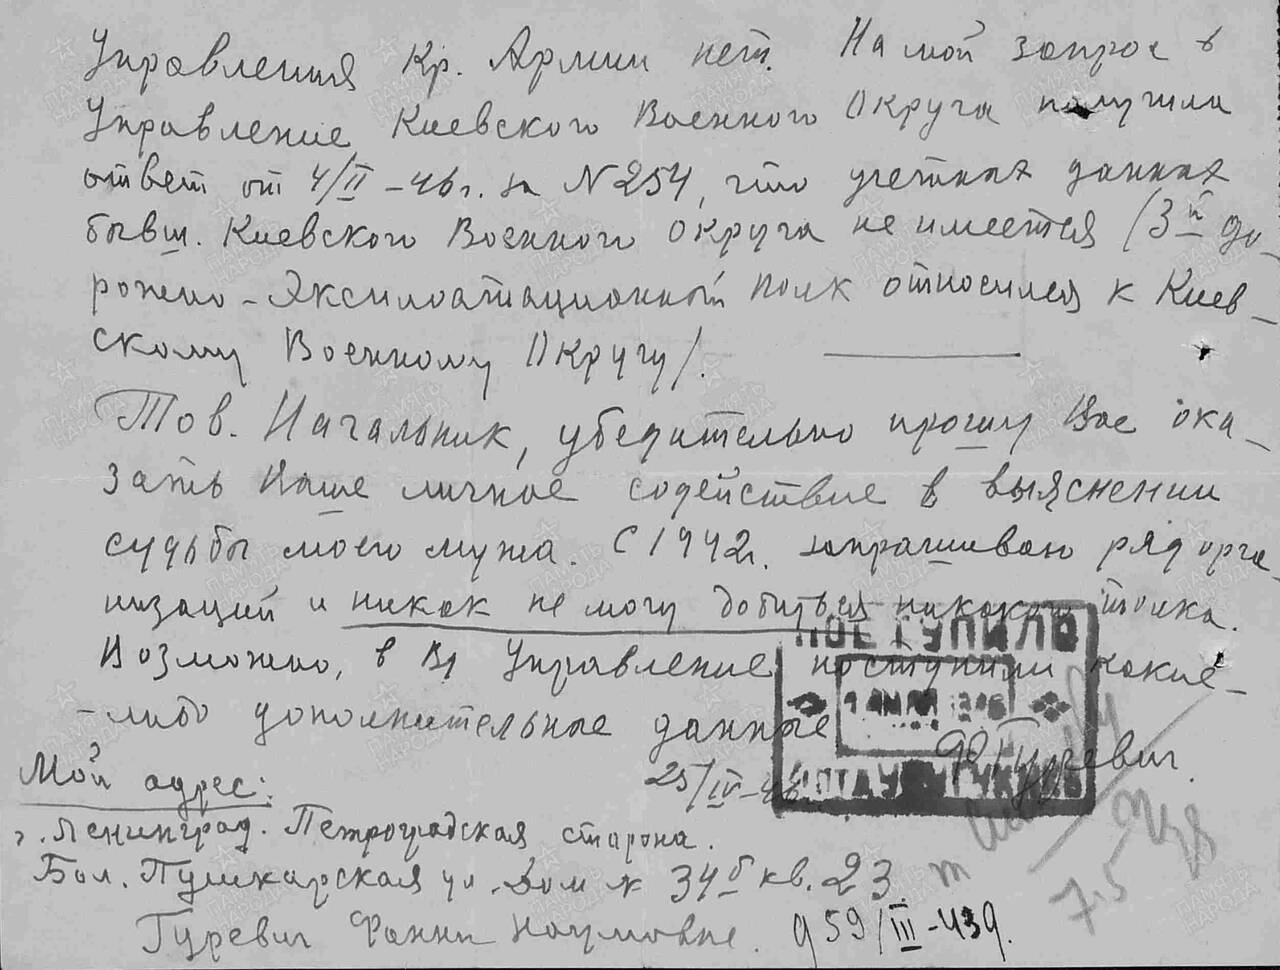 Управления Кр. Армии нет. На мой запрос в
Управление Киевского Военного Округа получила
ответ от 4/II-46г. за N254, что учетных данных
бывш. Киевского Военного Округа не имеется (3й до-
рожно-Эксплоатационный полк относился к Киев-
скому Военному Округу).
Тов. Начальник, убедительно прошу Вас ока-
зать Ваше личное содействие в выяснении
судьбы моего мужа. С 1942г. запрашиваю ряд орга-
низаций и никак не могу добиться никакого толка.
Возможно, в Управление поступили какие-
-либо дополнительные данные
ПОСТУПИЛО
25/IV-46
Гуревич.
Мой адрес:
г. Ленинград. Петроградская сторона.
Бол. Пушкарская ул. Дом № 34б кв. 23
Гуревич Фанни Наумовне.
959/III-43г.
7.5